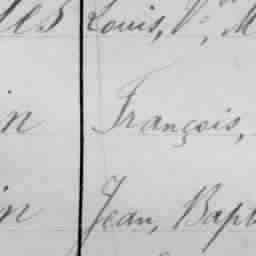 Louis, V.
in François,
in Jean, Bapt